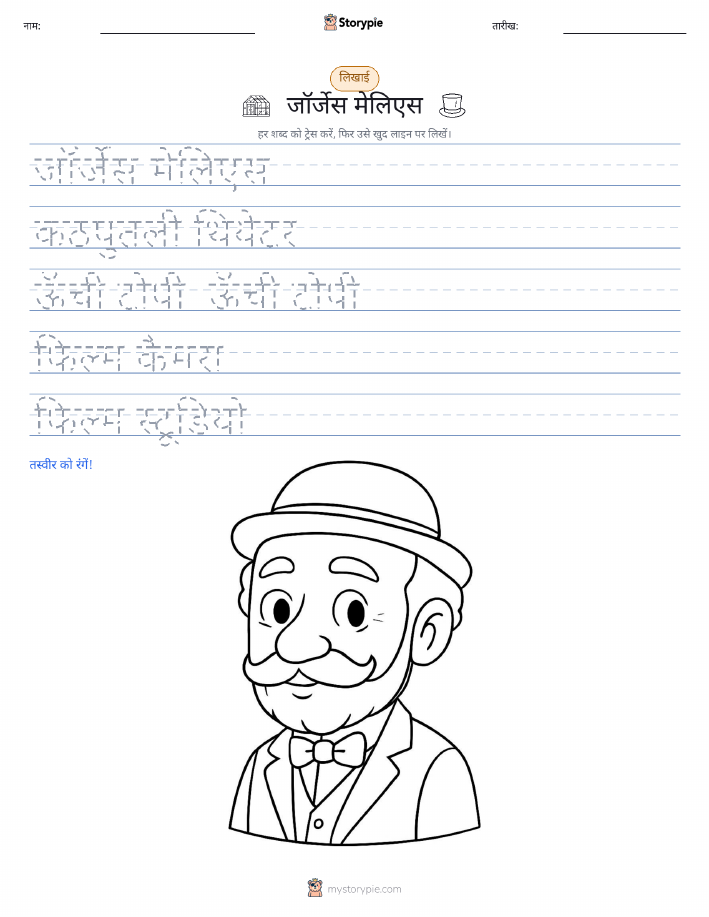 नाम:
Storypie
तारीख:
लिखाई
जॉर्जेस मेलिएस
हर शब्द को ट्रेस करें, फिर उसे खुद लाइन पर लिखें।
जॉर्जेस मेलिएस
कठपुतली थियेटर
ऊँची टोपी ऊँची टोपी
फिल्म कैमरा
फिल्म स्टूडियो
तस्वीर को रंगें!
mystorypie.com